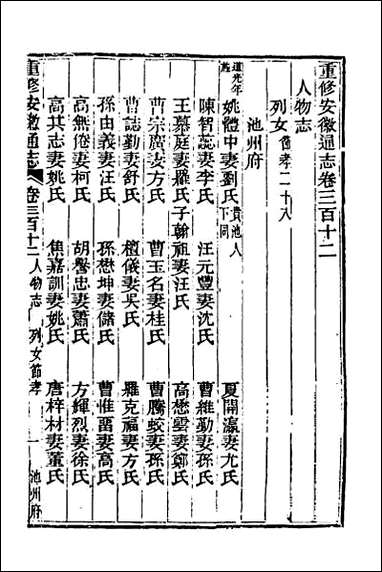 重修安徽通志卷三百十二
人物志
列女 節孝二十八
池州府
道光年 姚體中妻劉氏 貴池人下同 夏開瀛妻尤氏
陳智蕊妻李氏 汪元豐妻沈氏 曹維勤妻孫氏
王慕庭妻羅氏子翰祖妻汪氏 高懋雲妻鄭氏
曹宗廣妻方氏 曹玉名妻桂氏 曹騰蛟妻孫氏
曹誌勤妻舒氏 檀儀妻吳氏 羅克福妻方氏
孫由義妻汪氏 孫懋坤妻儲氏 曹惟畱妻高氏
高無倦妻柯氏 胡譽忠妻蕭氏 方輝烈妻徐氏
高其志妻姚氏 焦嘉訓妻姚氏 唐梓材妻董氏
重修安徽通志 卷三百十二 人物志 列女節孝 一 池州府